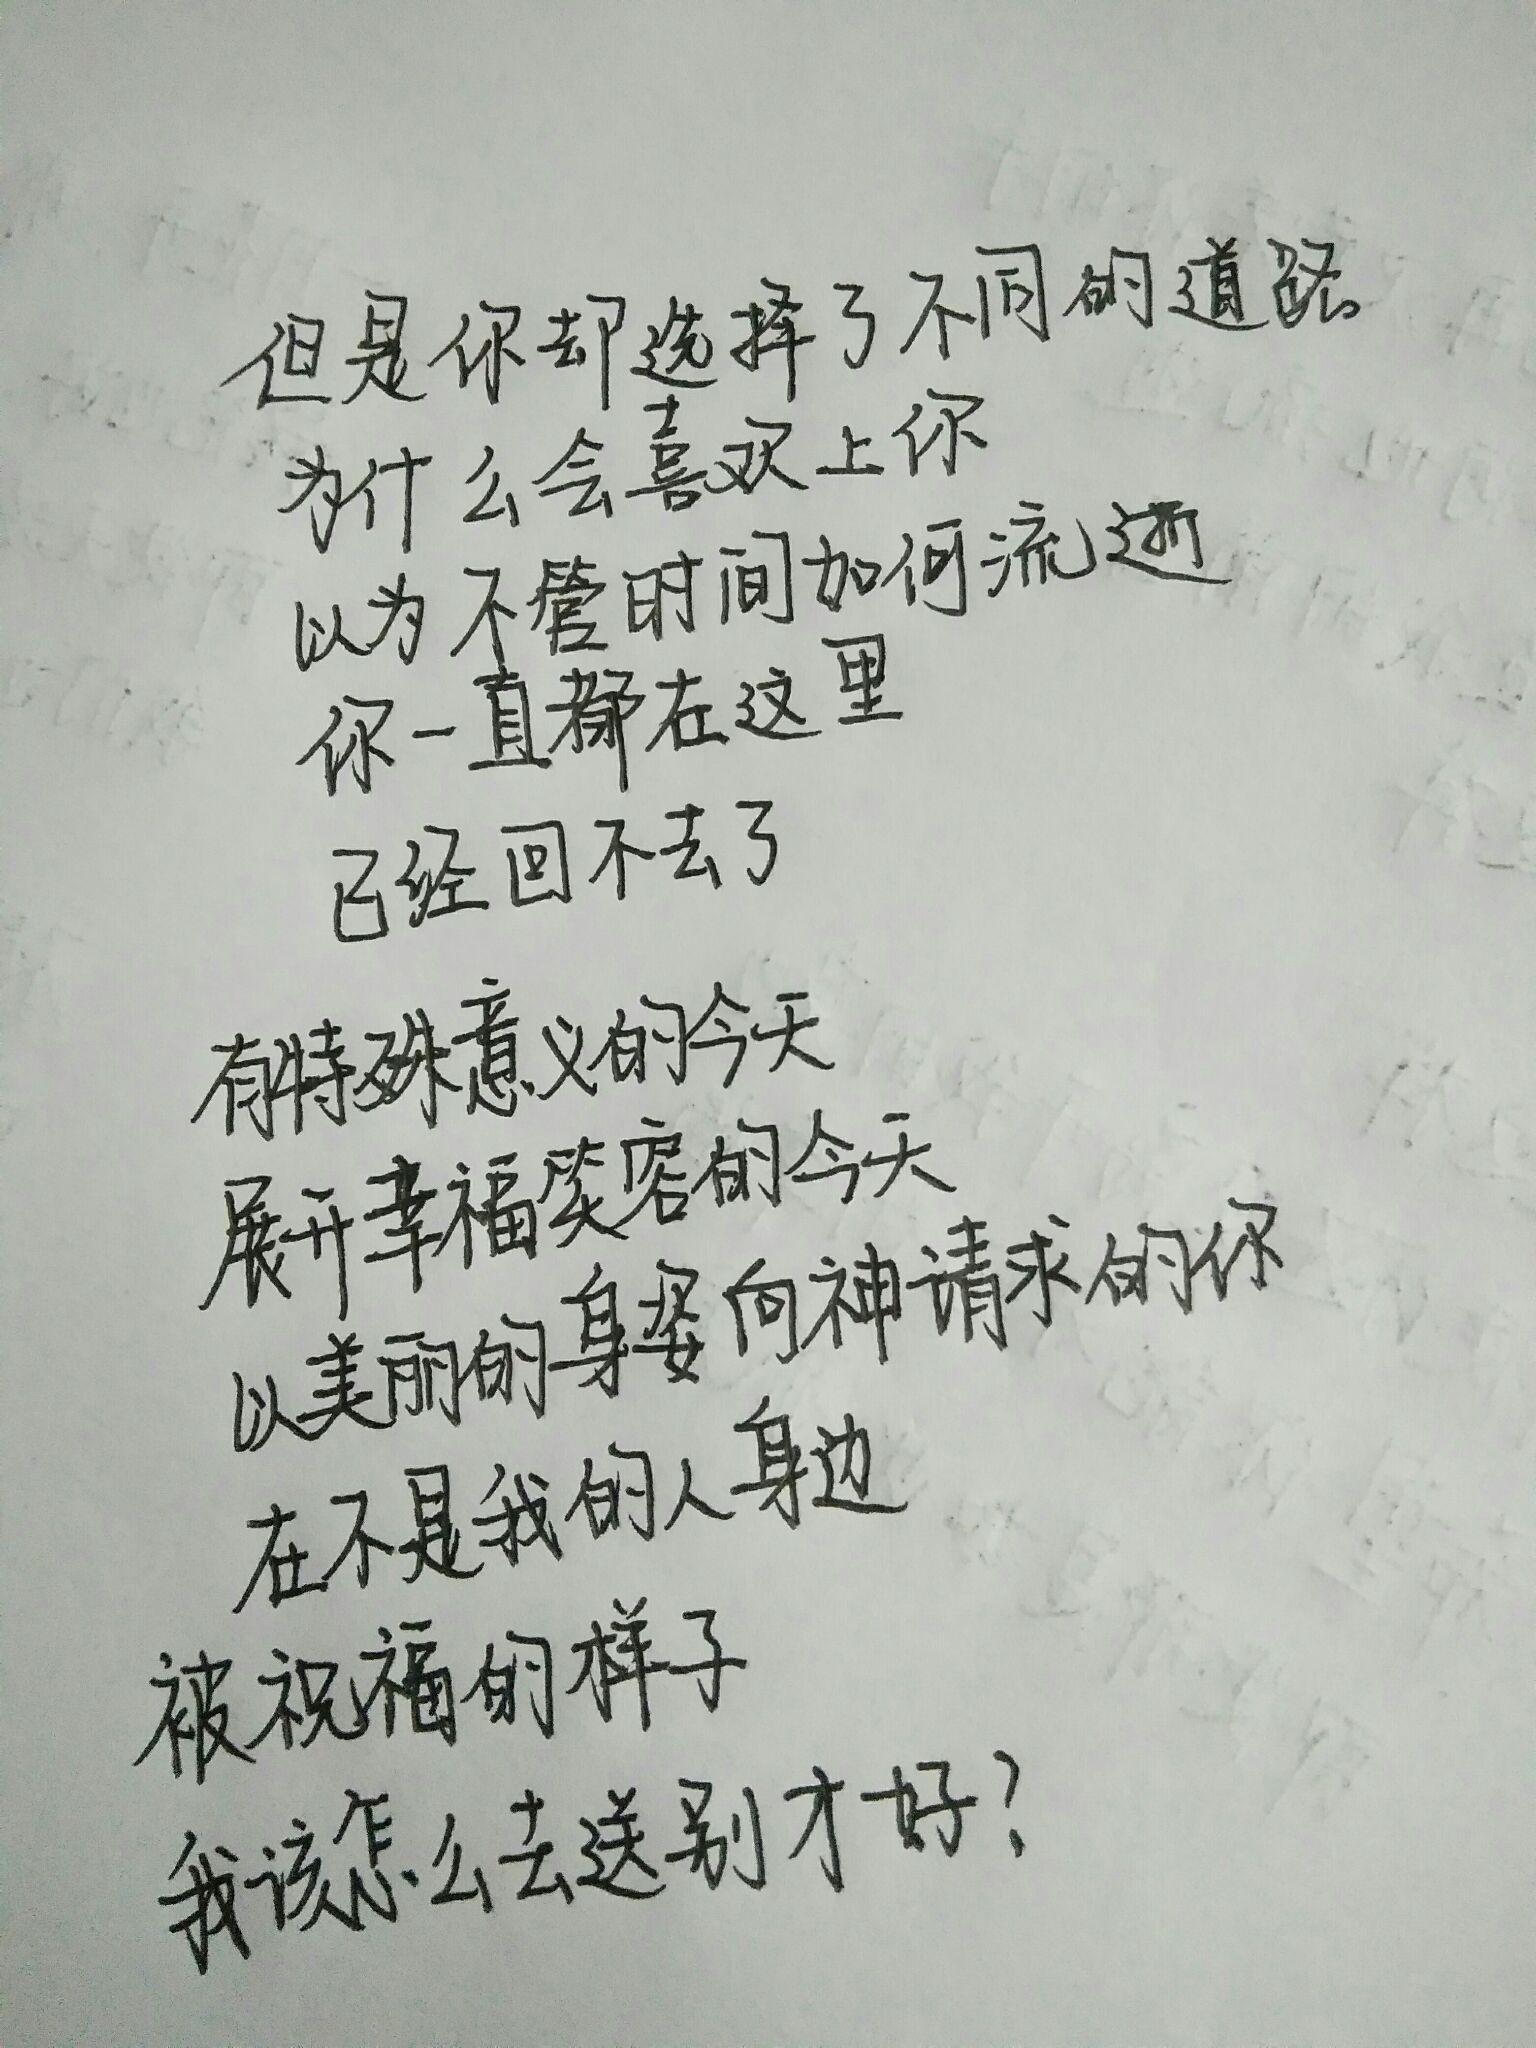 但是你却选择了不同的道路
为什么会喜欢上你
以为不管时间如何流逝
你一直都在这里
已经回不去了
有特殊意义的今天
展开幸福笑容的今天
以美丽的身姿向神请求的你
在不是我的人身边
被祝福的样子
我该怎么去送别才好?